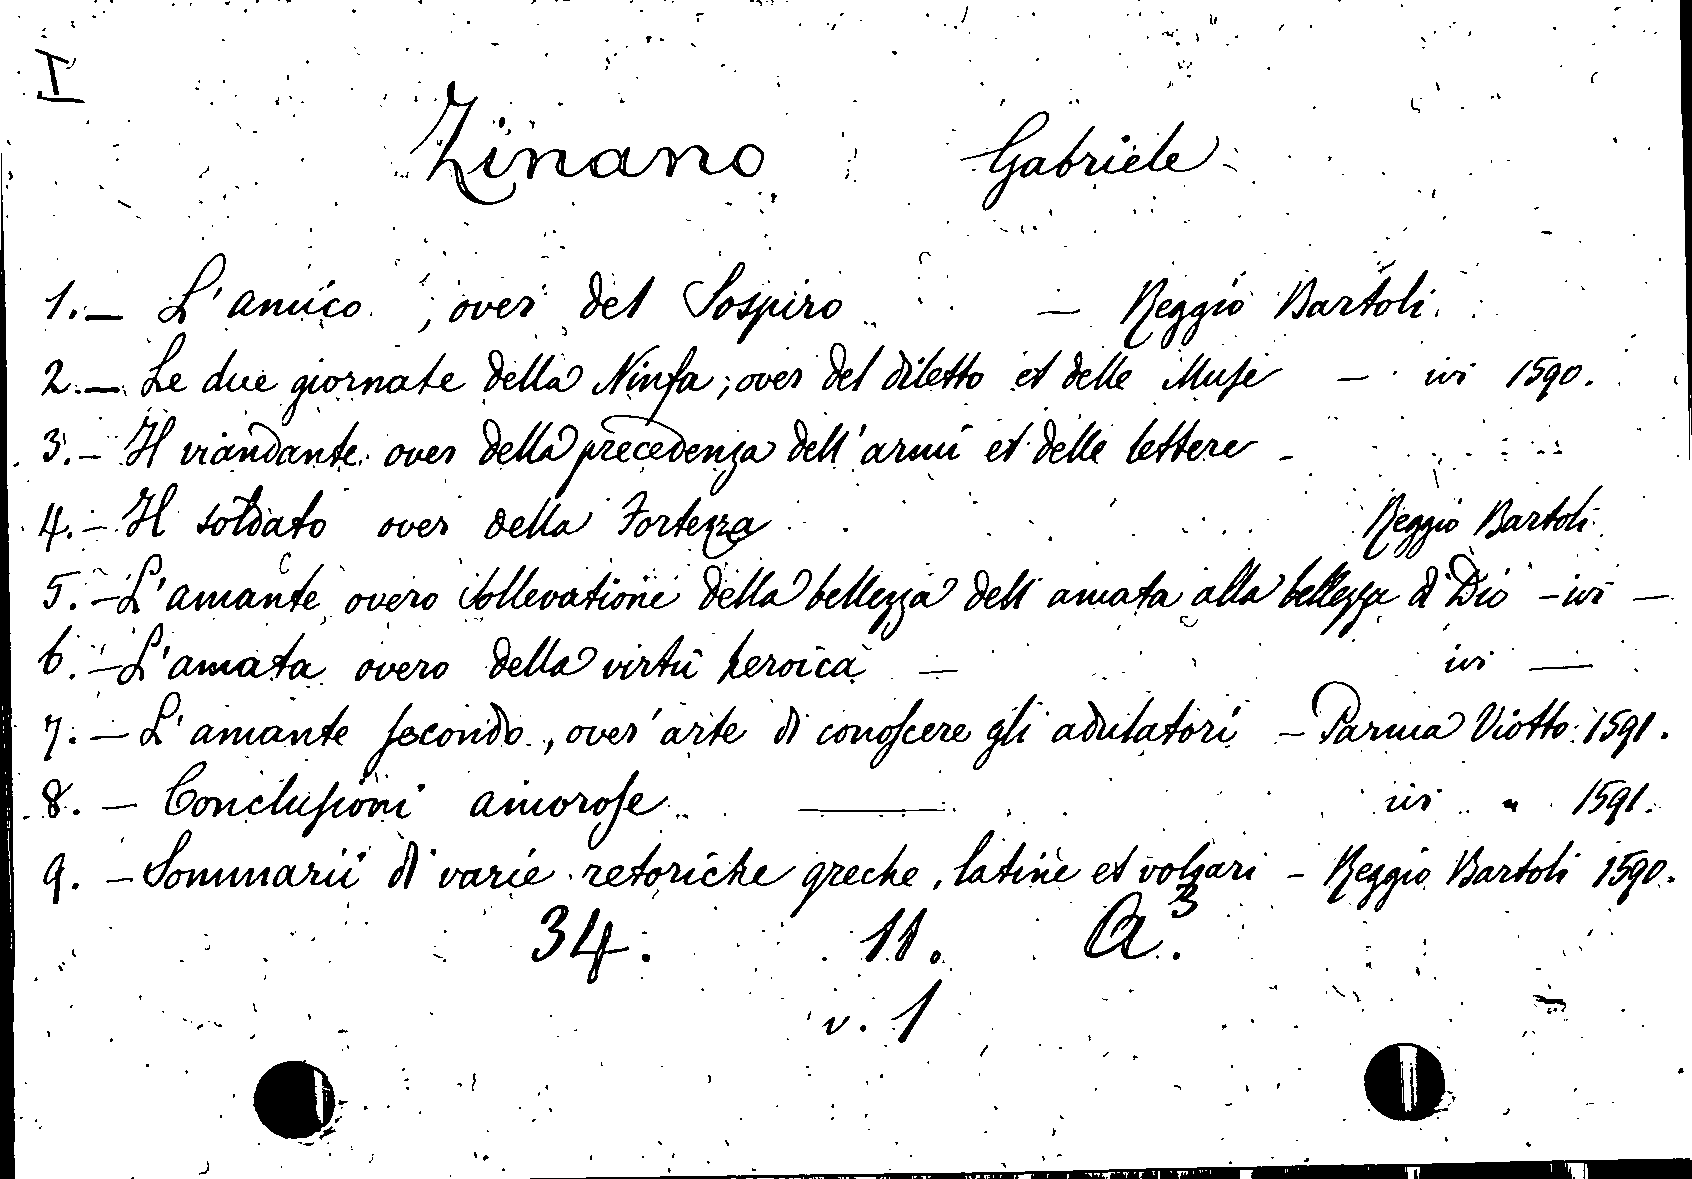 I
Zinano Gabriele
1. — L'amico, over del Sospiro — Reggio Bartoli.
2. — Le due giornate della Ninfa, over del diletto et delle Muse — ivi 1590.
3. — Il viandante over della precedenza dell'armi et delle lettere —
4. — Il soldato over della Fortezza Reggio Bartoli
5. — L'amante overo sollevatione della bellezza dell amata alla bellezza di Dio — ivi —
6. — L'amata overo della virtù heroica — ivi —
7. — L'amante secondo, over'arte di conoscere gli adulatori — Parma Viotto 1591.
8. — Conclusioni amorose — ivi " 1591.
9. — Sommarii di varie retoriche greche, latine et volgari — Reggio Bartoli 1590.
34. 11. A³.
v. 1